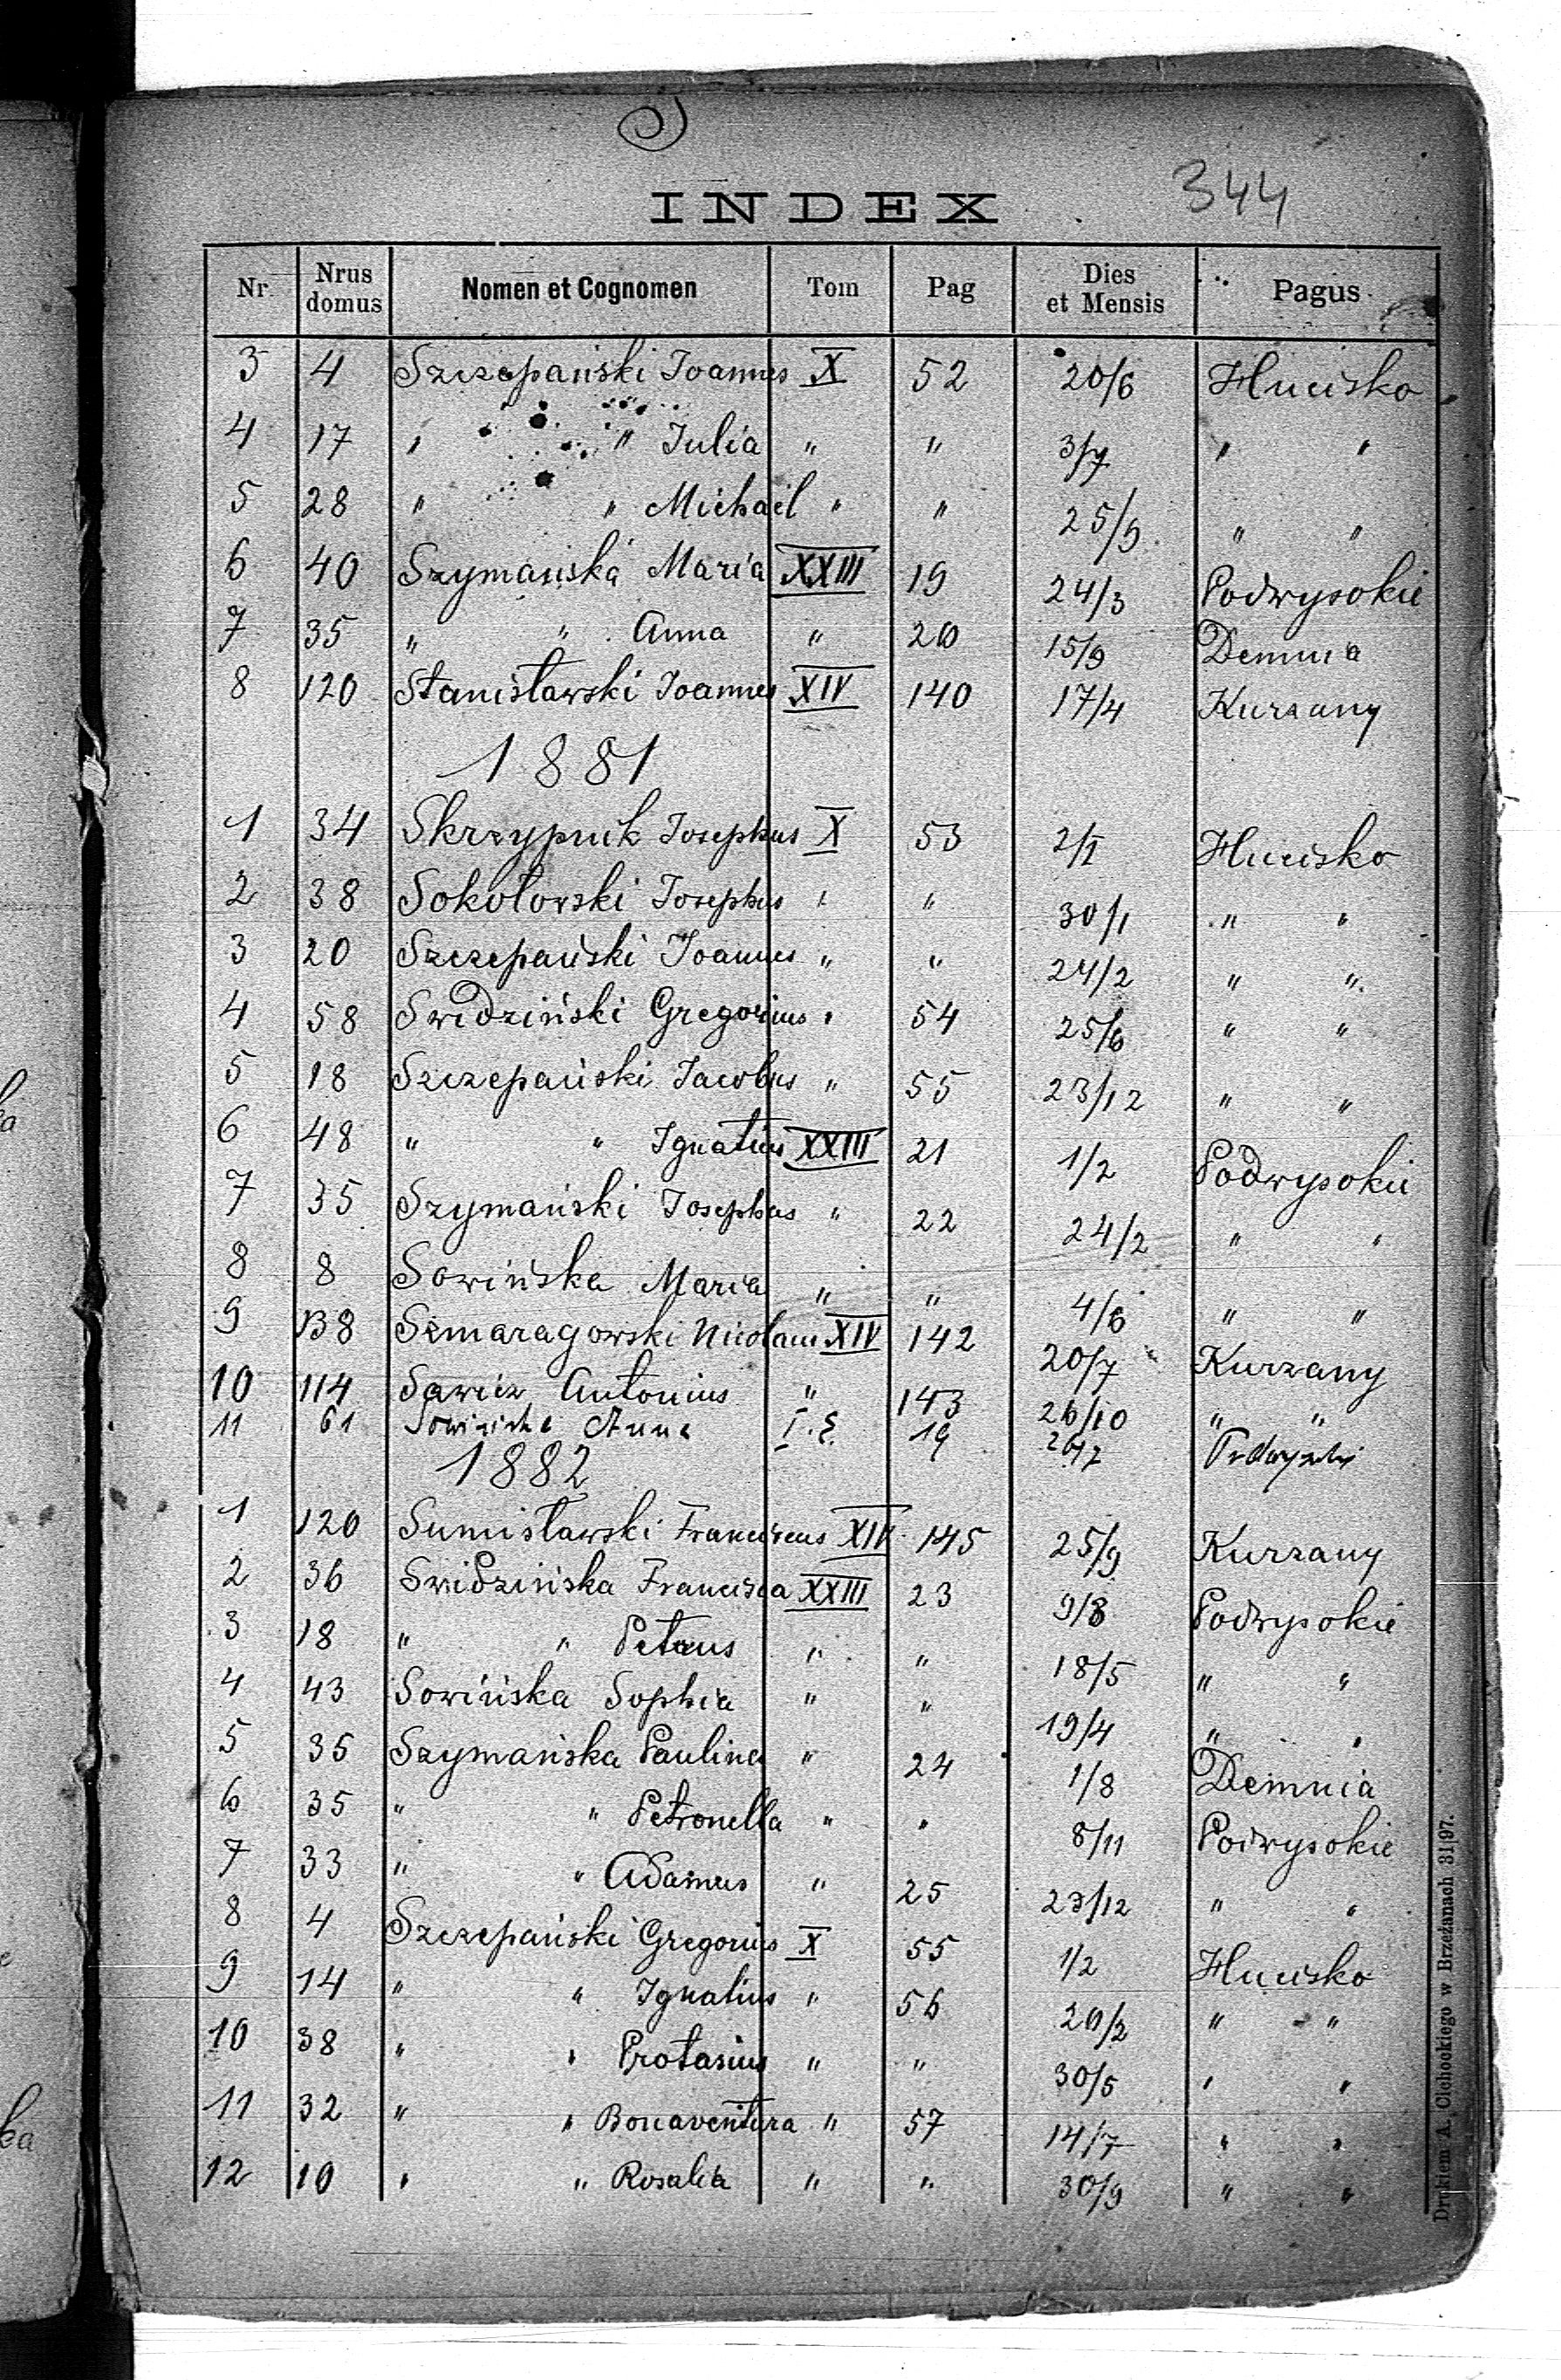 344
INDEX
Nr Nrus domus Nomen et Cognomen Tom Pag Dies et Mensis Pagus
3 4 Szczepański Joannes X 52 20/6 Hucisko
4 17 " " Julia " " 3/7 " "
5 28 " " Michael " " 25/9 " "
6 40 Szymańska Maria XXIII 19 24/3 Podwysokie
7 35 " " Anna " 20 15/9 Demnia
8 120 Stanisławski Joannes XIV 140 17/4 Kurzany
1881
1 34 Skrzypnik Josephus X 53 2/I Hucisko
2 38 Sokołowski Josephus " " 30/1 " "
3 20 Szczepański Joannes " " 24/2 " "
4 58 Swidziński Gregorius " 54 25/6 " "
5 18 Szczepański Jacobus " 55 23/12 " "
6 48 " " Ignatius XXIII 21 1/2 Podwysokie
7 35 Szymański Josephus " 22 24/2 " "
8 8 Sowińska Maria " " 4/6 " "
9 138 Szmaragowski Nicolaus XIV 142 20/7 Kurzany
10 114 Sawicz Antonius " 143 26/10 " "
11 61 Sowińska Anna I.E. 19 Podwysokie
1882
1 120 Sunisławski Franciscus XIV 145 25/9 Kurzany
2 36 Swidzińska Francisca XXIII 23 9/8 Podwysokie
3 18 " " Petrus " " 18/5 " "
4 43 Sowińska Sophia " " 19/4 " "
5 35 Szymańska Paulina " 24 1/8 Demnia
6 35 " " Petronella " " 8/11 Podwysokie
7 33 " " Adamus " 25 23/12 " "
8 4 Szczepański Gregorius X 55 1/2 Hucisko
9 14 " " Ignatius " 56 20/2 " "
10 38 " " Protasius " " 30/5 " "
11 32 " " Bonaventura " 57 14/7 " "
12 10 " " Rosalia " " 30/9 " "
Drukiem A. Cichockiego w Brzeżanach 31|97.